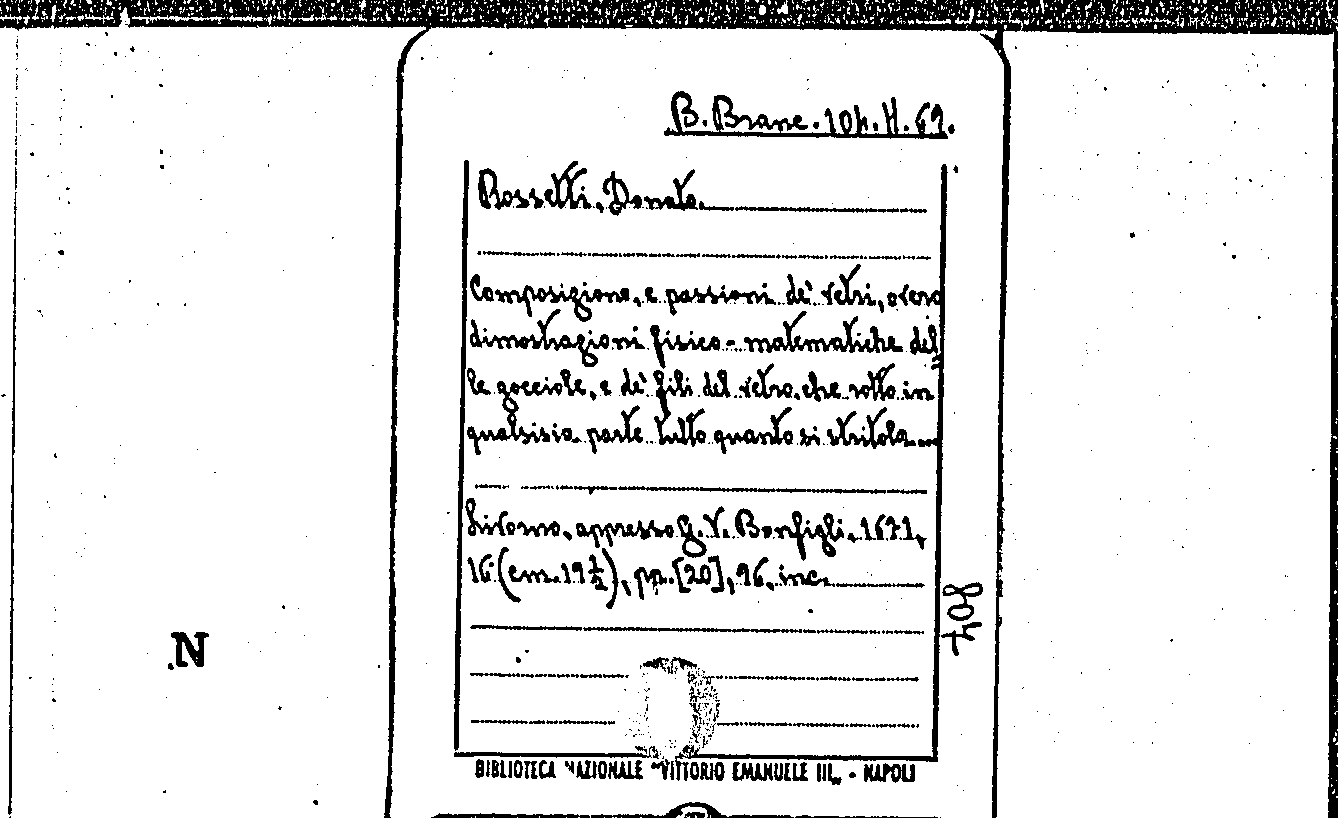 B. Branc. 104. H. 69.
Rossetti, Donato.
Composizione, e passioni de' vetri, overo
dimostrazioni fisico-matematiche del=
le gocciole, e de' fili del vetro, che rotto in
qualsisia parte tutto quanto si stritola...
Livorno, appresso G. V. Bonfigli, 1671,
16° (cm. 19½), pp. [20], 96, inc.
804
N
BIBLIOTECA NAZIONALE "VITTORIO EMANUELE III" - NAPOLI